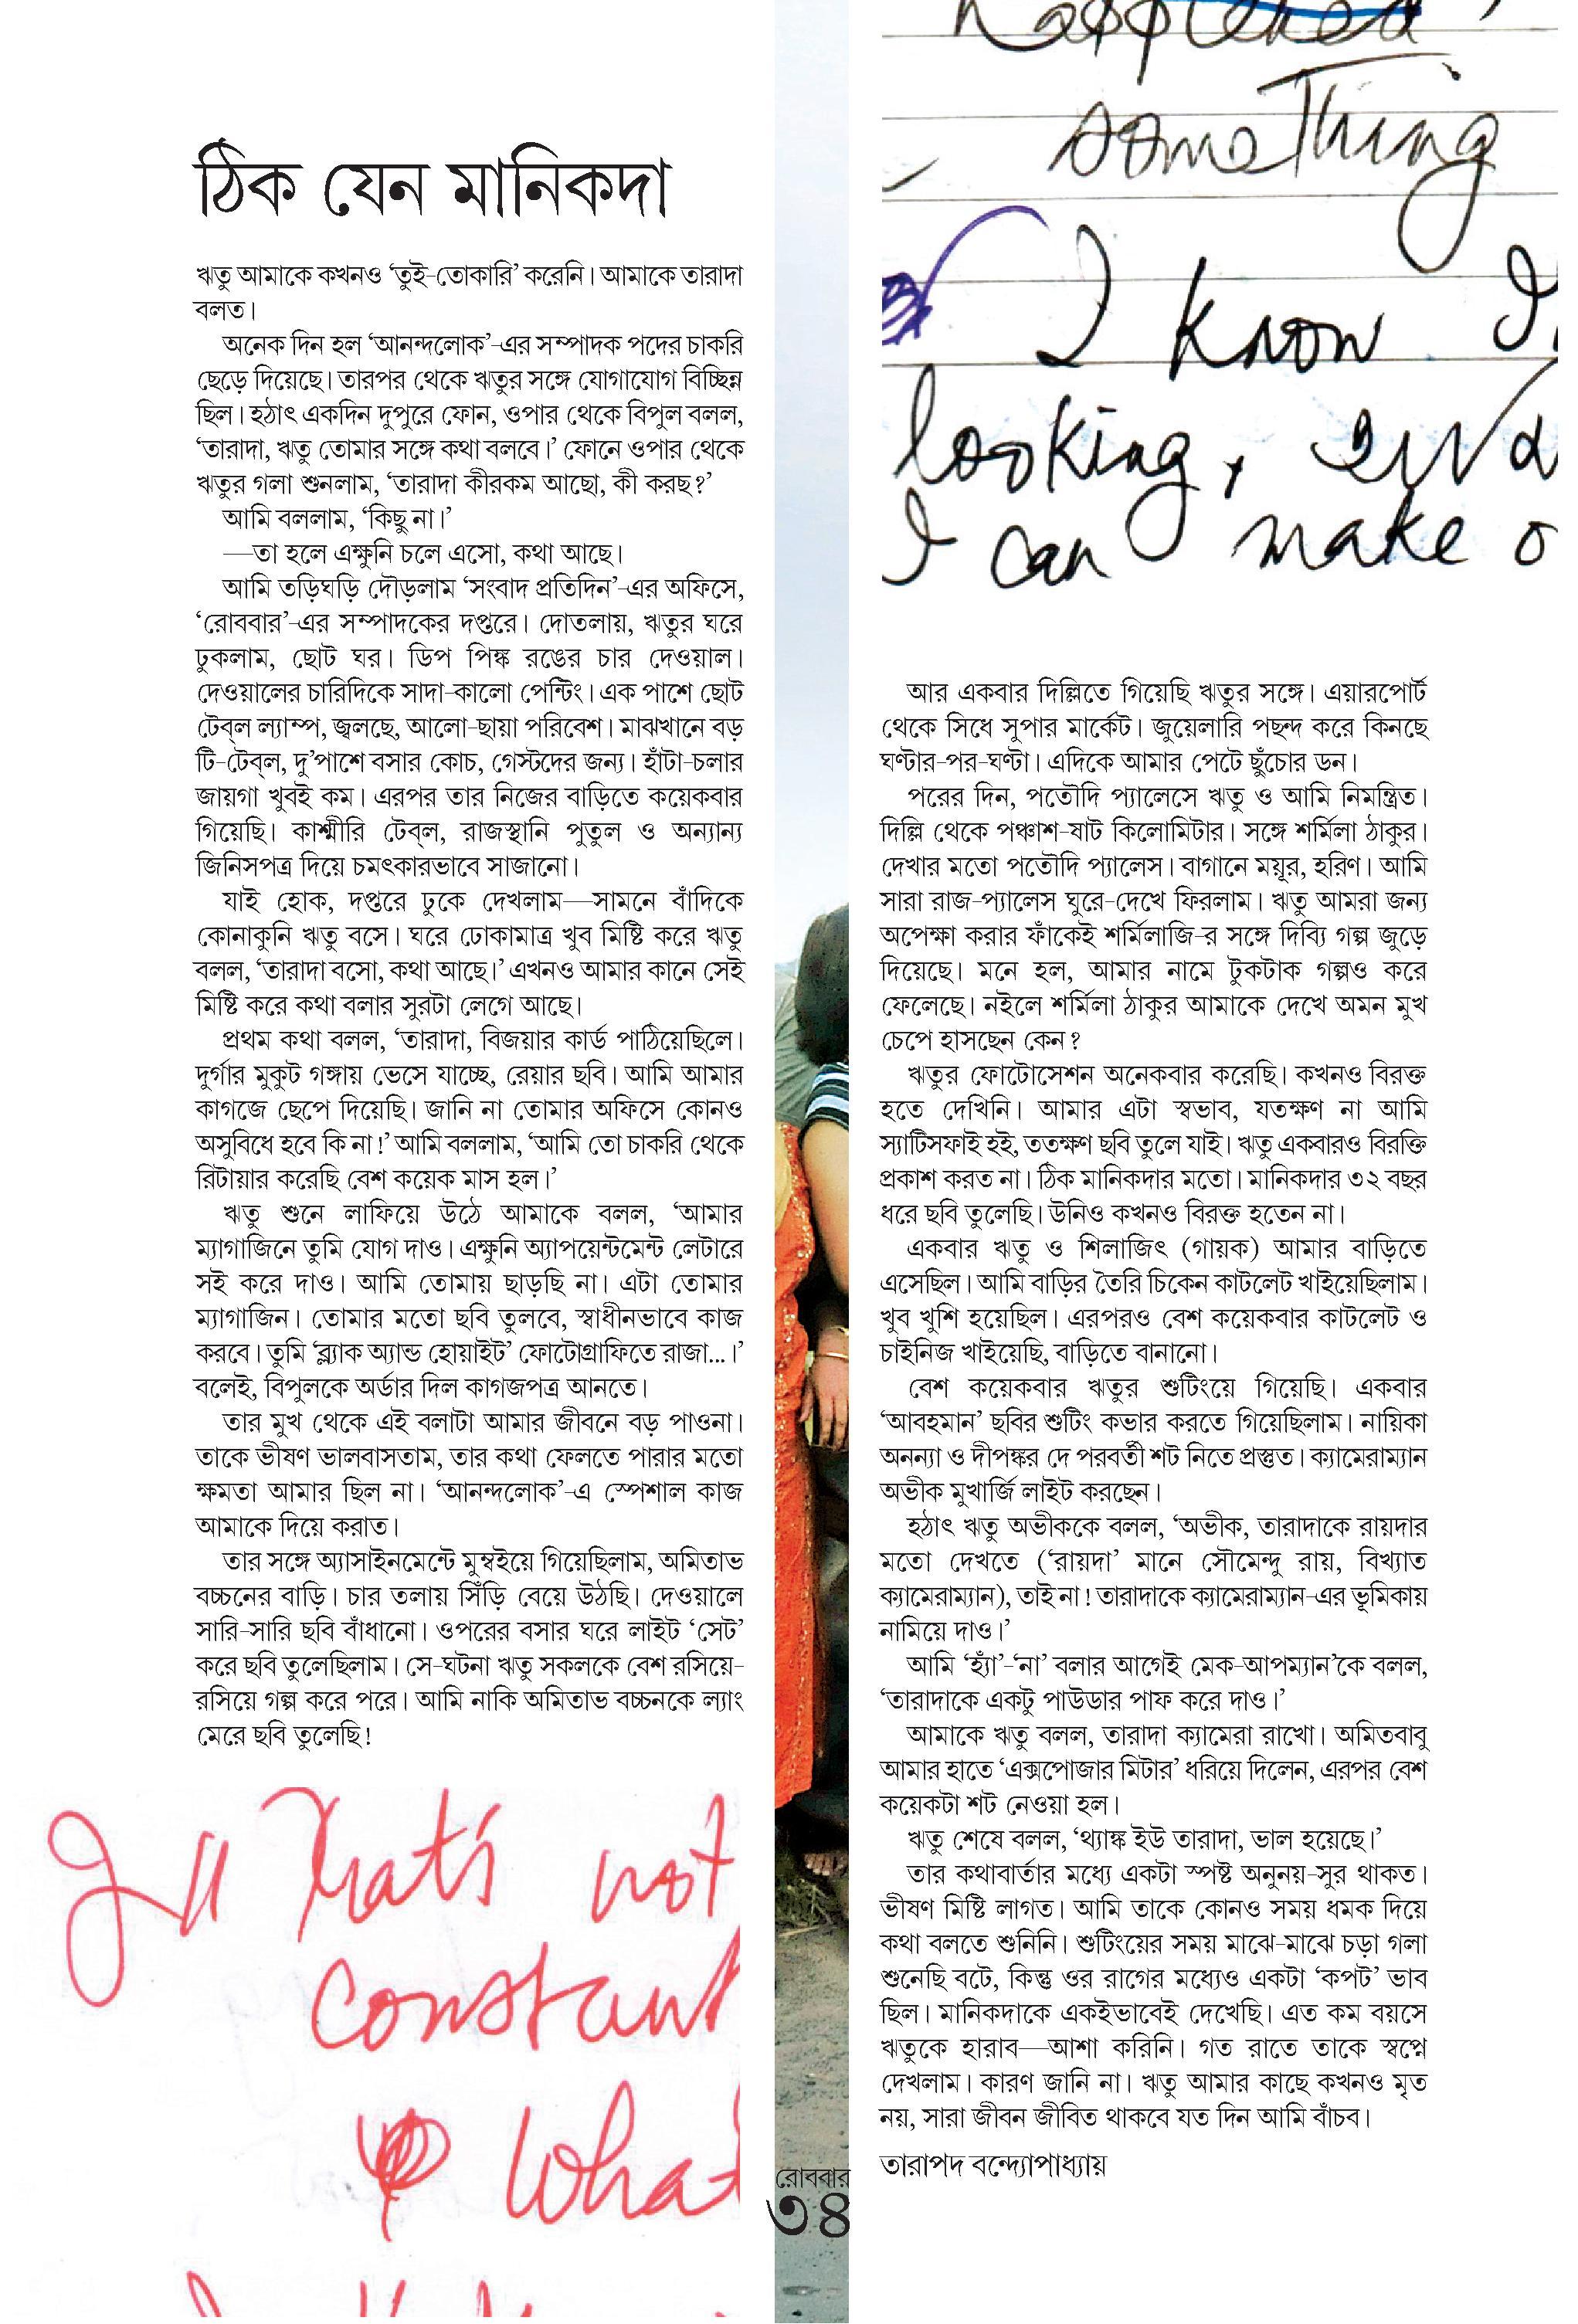 ঠিক যেন মানিকদা
ঋতু আমাকে কখনও ‘তুই-তোকারি’ করেনি। আমাকে তারাদা
বলত।
অনেক দিন হল ‘আনন্দলোক’-এর সম্পাদক পদের চাকরি
ছেড়ে দিয়েছে। তারপর থেকে ঋতুর সঙ্গে যোগাযোগ বিচ্ছিন্ন
ছিল। হঠাৎ একদিন দুপুরে ফোন, ওপার থেকে বিপুল বলল,
‘তারাদা, ঋতু তোমার সঙ্গে কথা বলবে।’ ফোনে ওপার থেকে
ঋতুর গলা শুনলাম, ‘তারাদা কীরকম আছো, কী করছ?’
আমি বললাম, ‘কিছু না।’
—তা হলে এক্ষুনি চলে এসো, কথা আছে।
আমি তড়িঘড়ি দৌড়লাম ‘সংবাদ প্রতিদিন’-এর অফিসে,
‘রোববার’-এর সম্পাদকের দপ্তরে। দোতলায়, ঋতুর ঘরে
ঢুকলাম, ছোট ঘর। ডিপ পিঙ্ক রঙের চার দেওয়াল।
দেওয়ালের চারিদিকে সাদা-কালো পেন্টিং। এক পাশে ছোট
টেব্‌ল ল্যাম্প, জ্বলছে, আলো-ছায়া পরিবেশ। মাঝখানে বড়
টি-টেব্‌ল, দু’পাশে বসার কোচ, গেস্টদের জন্য। হাঁটা-চলার
জায়গা খুবই কম। এরপর তার নিজের বাড়িতে কয়েকবার
গিয়েছি। কাশ্মীরি টেব্‌ল, রাজস্থানি পুতুল ও অন্যান্য
জিনিসপত্র দিয়ে চমৎকারভাবে সাজানো।
যাই হোক, দপ্তরে ঢুকে দেখলাম—সামনে বাঁদিকে
কোনাকুনি ঋতু বসে। ঘরে ঢোকামাত্র খুব মিষ্টি করে ঋতু
বলল, ‘তারাদা বসো, কথা আছে।’ এখনও আমার কানে সেই
মিষ্টি করে কথা বলার সুরটা লেগে আছে।
প্রথম কথা বলল, ‘তারাদা, বিজয়ার কার্ড পাঠিয়েছিলে।
দুর্গার মুকুট গঙ্গায় ভেসে যাচ্ছে, রেয়ার ছবি। আমি আমার
কাগজে ছেপে দিয়েছি। জানি না তোমার অফিসে কোনও
অসুবিধে হবে কি না!’ আমি বললাম, ‘আমি তো চাকরি থেকে
রিটায়ার করেছি বেশ কয়েক মাস হল।’
ঋতু শুনে লাফিয়ে উঠে আমাকে বলল, ‘আমার
ম্যাগাজিনে তুমি যোগ দাও। এক্ষুনি অ্যাপয়েন্টমেন্ট লেটারে
সই করে দাও। আমি তোমায় ছাড়ছি না। এটা তোমার
ম্যাগাজিন। তোমার মতো ছবি তুলবে, স্বাধীনভাবে কাজ
করবে। তুমি ‘ব্ল্যাক অ্যান্ড হোয়াইট’ ফোটোগ্রাফিতে রাজা...।’
বলেই, বিপুলকে অর্ডার দিল কাগজপত্র আনতে।
তার মুখ থেকে এই বলাটা আমার জীবনে বড় পাওনা।
তাকে ভীষণ ভালবাসতাম, তার কথা ফেলতে পারার মতো
ক্ষমতা আমার ছিল না। ‘আনন্দলোক’-এ স্পেশাল কাজ
আমাকে দিয়ে করাত।
তার সঙ্গে অ্যাসাইনমেন্টে মুম্বইয়ে গিয়েছিলাম, অমিতাভ
বচ্চনের বাড়ি। চার তলায় সিঁড়ি বেয়ে উঠছি। দেওয়ালে
সারি-সারি ছবি বাঁধানো। ওপরের বসার ঘরে লাইট ‘সেট’
করে ছবি তুলেছিলাম। সে-ঘটনা ঋতু সকলকে বেশ রসিয়ে-
রসিয়ে গল্প করে পরে। আমি নাকি অমিতাভ বচ্চনকে ল্যাং
মেরে ছবি তুলেছি!
All that's not
constant
What
happened
something
I know I
looking,
I can make o
আর একবার দিল্লিতে গিয়েছি ঋতুর সঙ্গে। এয়ারপোর্ট
থেকে সিধে সুপার মার্কেট। জুয়েলারি পছন্দ করে কিনছে
ঘণ্টার-পর-ঘণ্টা। এদিকে আমার পেটে ছুঁচোর ডন।
পরের দিন, পতৌদি প্যালেসে ঋতু ও আমি নিমন্ত্রিত।
দিল্লি থেকে পঞ্চাশ-ষাট কিলোমিটার। সঙ্গে শর্মিলা ঠাকুর।
দেখার মতো পতৌদি প্যালেস। বাগানে ময়ূর, হরিণ। আমি
সারা রাজ-প্যালেস ঘুরে-দেখে ফিরলাম। ঋতু আমরা জন্য
অপেক্ষা করার ফাঁকেই শর্মিলাজি-র সঙ্গে দিব্যি গল্প জুড়ে
দিয়েছে। মনে হল, আমার নামে টুকটাক গল্পও করে
ফেলেছে। নইলে শর্মিলা ঠাকুর আমাকে দেখে অমন মুখ
চেপে হাসছেন কেন?
ঋতুর ফোটোসেশন অনেকবার করেছি। কখনও বিরক্ত
হতে দেখিনি। আমার এটা স্বভাব, যতক্ষণ না আমি
স্যাটিসফাই হই, ততক্ষণ ছবি তুলে যাই। ঋতু একবারও বিরক্তি
প্রকাশ করত না। ঠিক মানিকদার মতো। মানিকদার ৩২ বছর
ধরে ছবি তুলেছি। উনিও কখনও বিরক্ত হতেন না।
একবার ঋতু ও শিলাজিৎ (গায়ক) আমার বাড়িতে
এসেছিল। আমি বাড়ির তৈরি চিকেন কাটলেট খাইয়েছিলাম।
খুব খুশি হয়েছিল। এরপরও বেশ কয়েকবার কাটলেট ও
চাইনিজ খাইয়েছি, বাড়িতে বানানো।
বেশ কয়েকবার ঋতুর শুটিংয়ে গিয়েছি। একবার
‘আবহমান’ ছবির শুটিং কভার করতে গিয়েছিলাম। নায়িকা
অনন্যা ও দীপঙ্কর দে পরবর্তী শট নিতে প্রস্তুত। ক্যামেরাম্যান
অভীক মুখার্জি লাইট করছেন।
হঠাৎ ঋতু অভীককে বলল, ‘অভীক, তারাদাকে রায়দার
মতো দেখতে (‘রায়দা’ মানে সৌমেন্দু রায়, বিখ্যাত
ক্যামেরাম্যান), তাই না! তারাদাকে ক্যামেরাম্যান-এর ভূমিকায়
নামিয়ে দাও।’
আমি ‘হ্যাঁ’-‘না’ বলার আগেই মেক-আপম্যান’কে বলল,
‘তারাদাকে একটু পাউডার পাফ করে দাও।’
আমাকে ঋতু বলল, তারাদা ক্যামেরা রাখো। অমিতবাবু
আমার হাতে ‘এক্সপোজার মিটার’ ধরিয়ে দিলেন, এরপর বেশ
কয়েকটা শট নেওয়া হল।
ঋতু শেষে বলল, ‘থ্যাঙ্ক ইউ তারাদা, ভাল হয়েছে।’
তার কথাবার্তার মধ্যে একটা স্পষ্ট অনুনয়-সুর থাকত।
ভীষণ মিষ্টি লাগত। আমি তাকে কোনও সময় ধমক দিয়ে
কথা বলতে শুনিনি। শুটিংয়ের সময় মাঝে-মাঝে চড়া গলা
শুনেছি বটে, কিন্তু ওর রাগের মধ্যেও একটা ‘কপট’ ভাব
ছিল। মানিকদাকে একইভাবেই দেখেছি। এত কম বয়সে
ঋতুকে হারাব—আশা করিনি। গত রাতে তাকে স্বপ্নে
দেখলাম। কারণ জানি না। ঋতু আমার কাছে কখনও মৃত
নয়, সারা জীবন জীবিত থাকবে যত দিন আমি বাঁচব।
তারাপদ বন্দ্যোপাধ্যায়
রোববার
৩৪